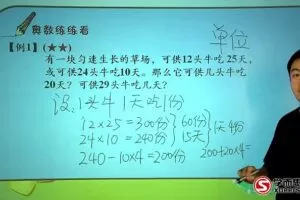 奥数练练看
单位
【例1】(★★)
有一块匀速生长的草场，可供12头牛吃25天，
或可供24头牛吃10天。那么它可供几头牛吃
20天？可供29头牛吃几天？
设：1头牛1天吃1份
12×25=300份 } 60份 } 1天4份
24×10=240份 } 15天
240-10×4=200份
200+20×4=
学而思